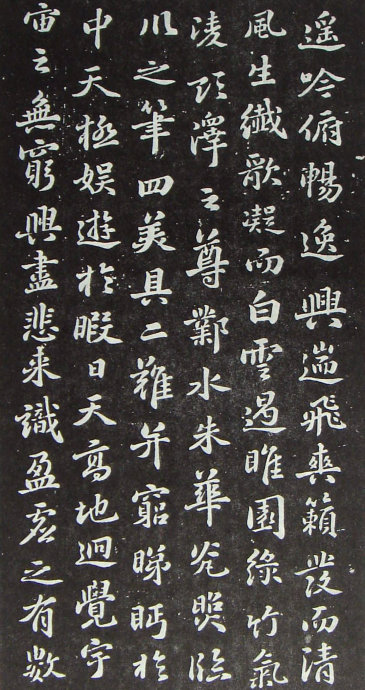 遥吟俯暢逸興遄飛爽籟發而清
風生纖歌凝而白雲遏睢園綠竹氣
凌彭澤之尊鄴水朱華光照臨
川之筆四美具二難并窮睇眄於
中天極娱遊於暇日天高地迥覺宇
宙之無窮興盡悲来識盈虛之有數